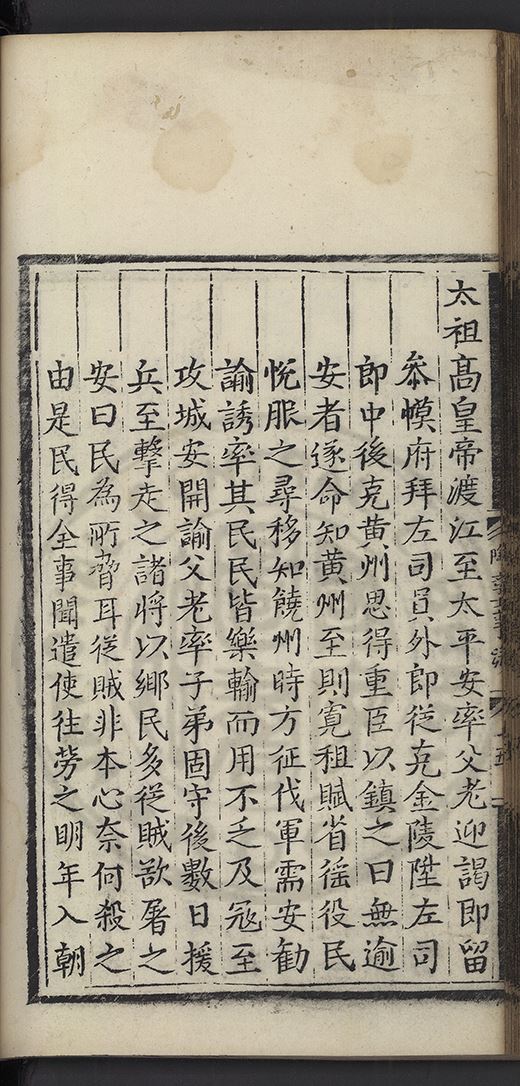 太祖高皇帝渡江至太平安率父老迎謁即留
叅幙府拜左司員外郎從克金陵陞左司
郎中後克黄州思得重臣以鎮之曰無逾
安者遂命知黄州至則寛租賦省徭役民
悦服之尋移知饒州時方征伐軍需安勸
諭誘率其民民皆樂輸而用不乏及冦至
攻城安開諭父老率子弟固守後數日援
兵至擊走之諸將以鄉民多從賊欲屠之
安曰民為所脅耳從賊非本心奈何殺之
由是民得全事聞遣使徃勞之明年入朝